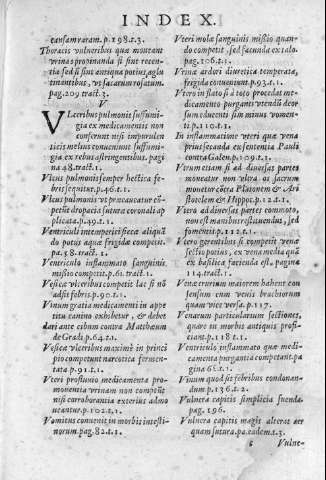 INDEX.
causam raram. p. 198. t. 3.
Thoracis vulneribus quæ moueant
vrinas propinanda si sint recen-
tia sed si sint antiqua potius aglu
tinantibus, vt saccarum rosatum.
pag. 209. tract. 3.
V
VLceribus pulmonis suffumi-
gia ex medicamentis non
conferunt nisi impurulen-
tis cis melius conueniunt suffumi-
gia ex rebus astringentibus. pagi
na 48. tract. 1.
Vlcus pulmonis semper hectica fe-
bris sequitur. p. 46. t. 1.
Vlcus pulmonis vt præcaueatur cō-
petūt dropacis sutura coronali ap
plicata. p. 49. t. 1.
Ventriculi intemperiei siccæ aliquā
do potus aquæ frigidæ competit.
pa. 38. tract. 1.
Ventriculo inflammato sanguinis
missio competit. p. 61. tract. 1.
Vesicæ vlceribus competit lac si nō
adsit febris. p. 90. t. 1.
Vinum gratia medicamenti in appe
titu canino exhibetur, & debet
dari ante cibum contra Matthæum
de Gradi. p. 64. t. 1.
Vesicæ vlceribus maximè in princi
pio competunt narcotica fermen-
tata. p. 91. t. 1.
Vteri profluuio medicamenta pro-
mouentia vrinam non competūt
nisi corroborantia exterius admo
ueantur. p. 102. t. 1.
Vomitus conuenit in morbis intesti
norum. pag. 82. t. 1.
Vteri molæ sanguinis missio quan-
do competit, sed secunda ex talo.
pag. 106. t. 1.
Vrinæ ardori diuretica temperata,
frigida conueniunt. p. 93. t. 1.
Vtero inflato si à toto procedat me-
dicamento purgantis vtendū deor
sum educenti sin minus vomen-
ti. p. 110. t. 1.
In inflammatione vteri quæ vena
prius secanda ex sententia Pauli
contra Galen. p. 109. t. 1.
Vterum etiam si ad diuersas partes
moueatur non vltra os sacrum
monetur cōtra Platonem & Ari
stotelem & Hippoc. p. 112. t. 1.
Vtero ad diuersas partes commoto,
non est manibus restituendus, sed
fomentis. p. 112. t. 1.
Vtero gerentibus si competit venæ
sectio potius, ex vena media quā
ex basilica facienda est, pagina
114. tract. 1.
Venæ crurium maiorem habent con
sensum cum venis brachiorum
quam vice versa. p. 117.
Venarum particularium sectiones,
quare in morbis antiquis profi-
ciant. p. 118. t. 1.
Ventriculi inflammato quæ medi-
camenta purgantia competant. pa
gina 66. t. 1.
Vinum quod sit febribus condonan-
dum. p. 136. t. 2.
Vulnera capitis simplicia suenda.
pag. 196.
Vulnera capitis magis alterat aer
quam sutura. pa. eadem. t. 3.
6 Vulne-